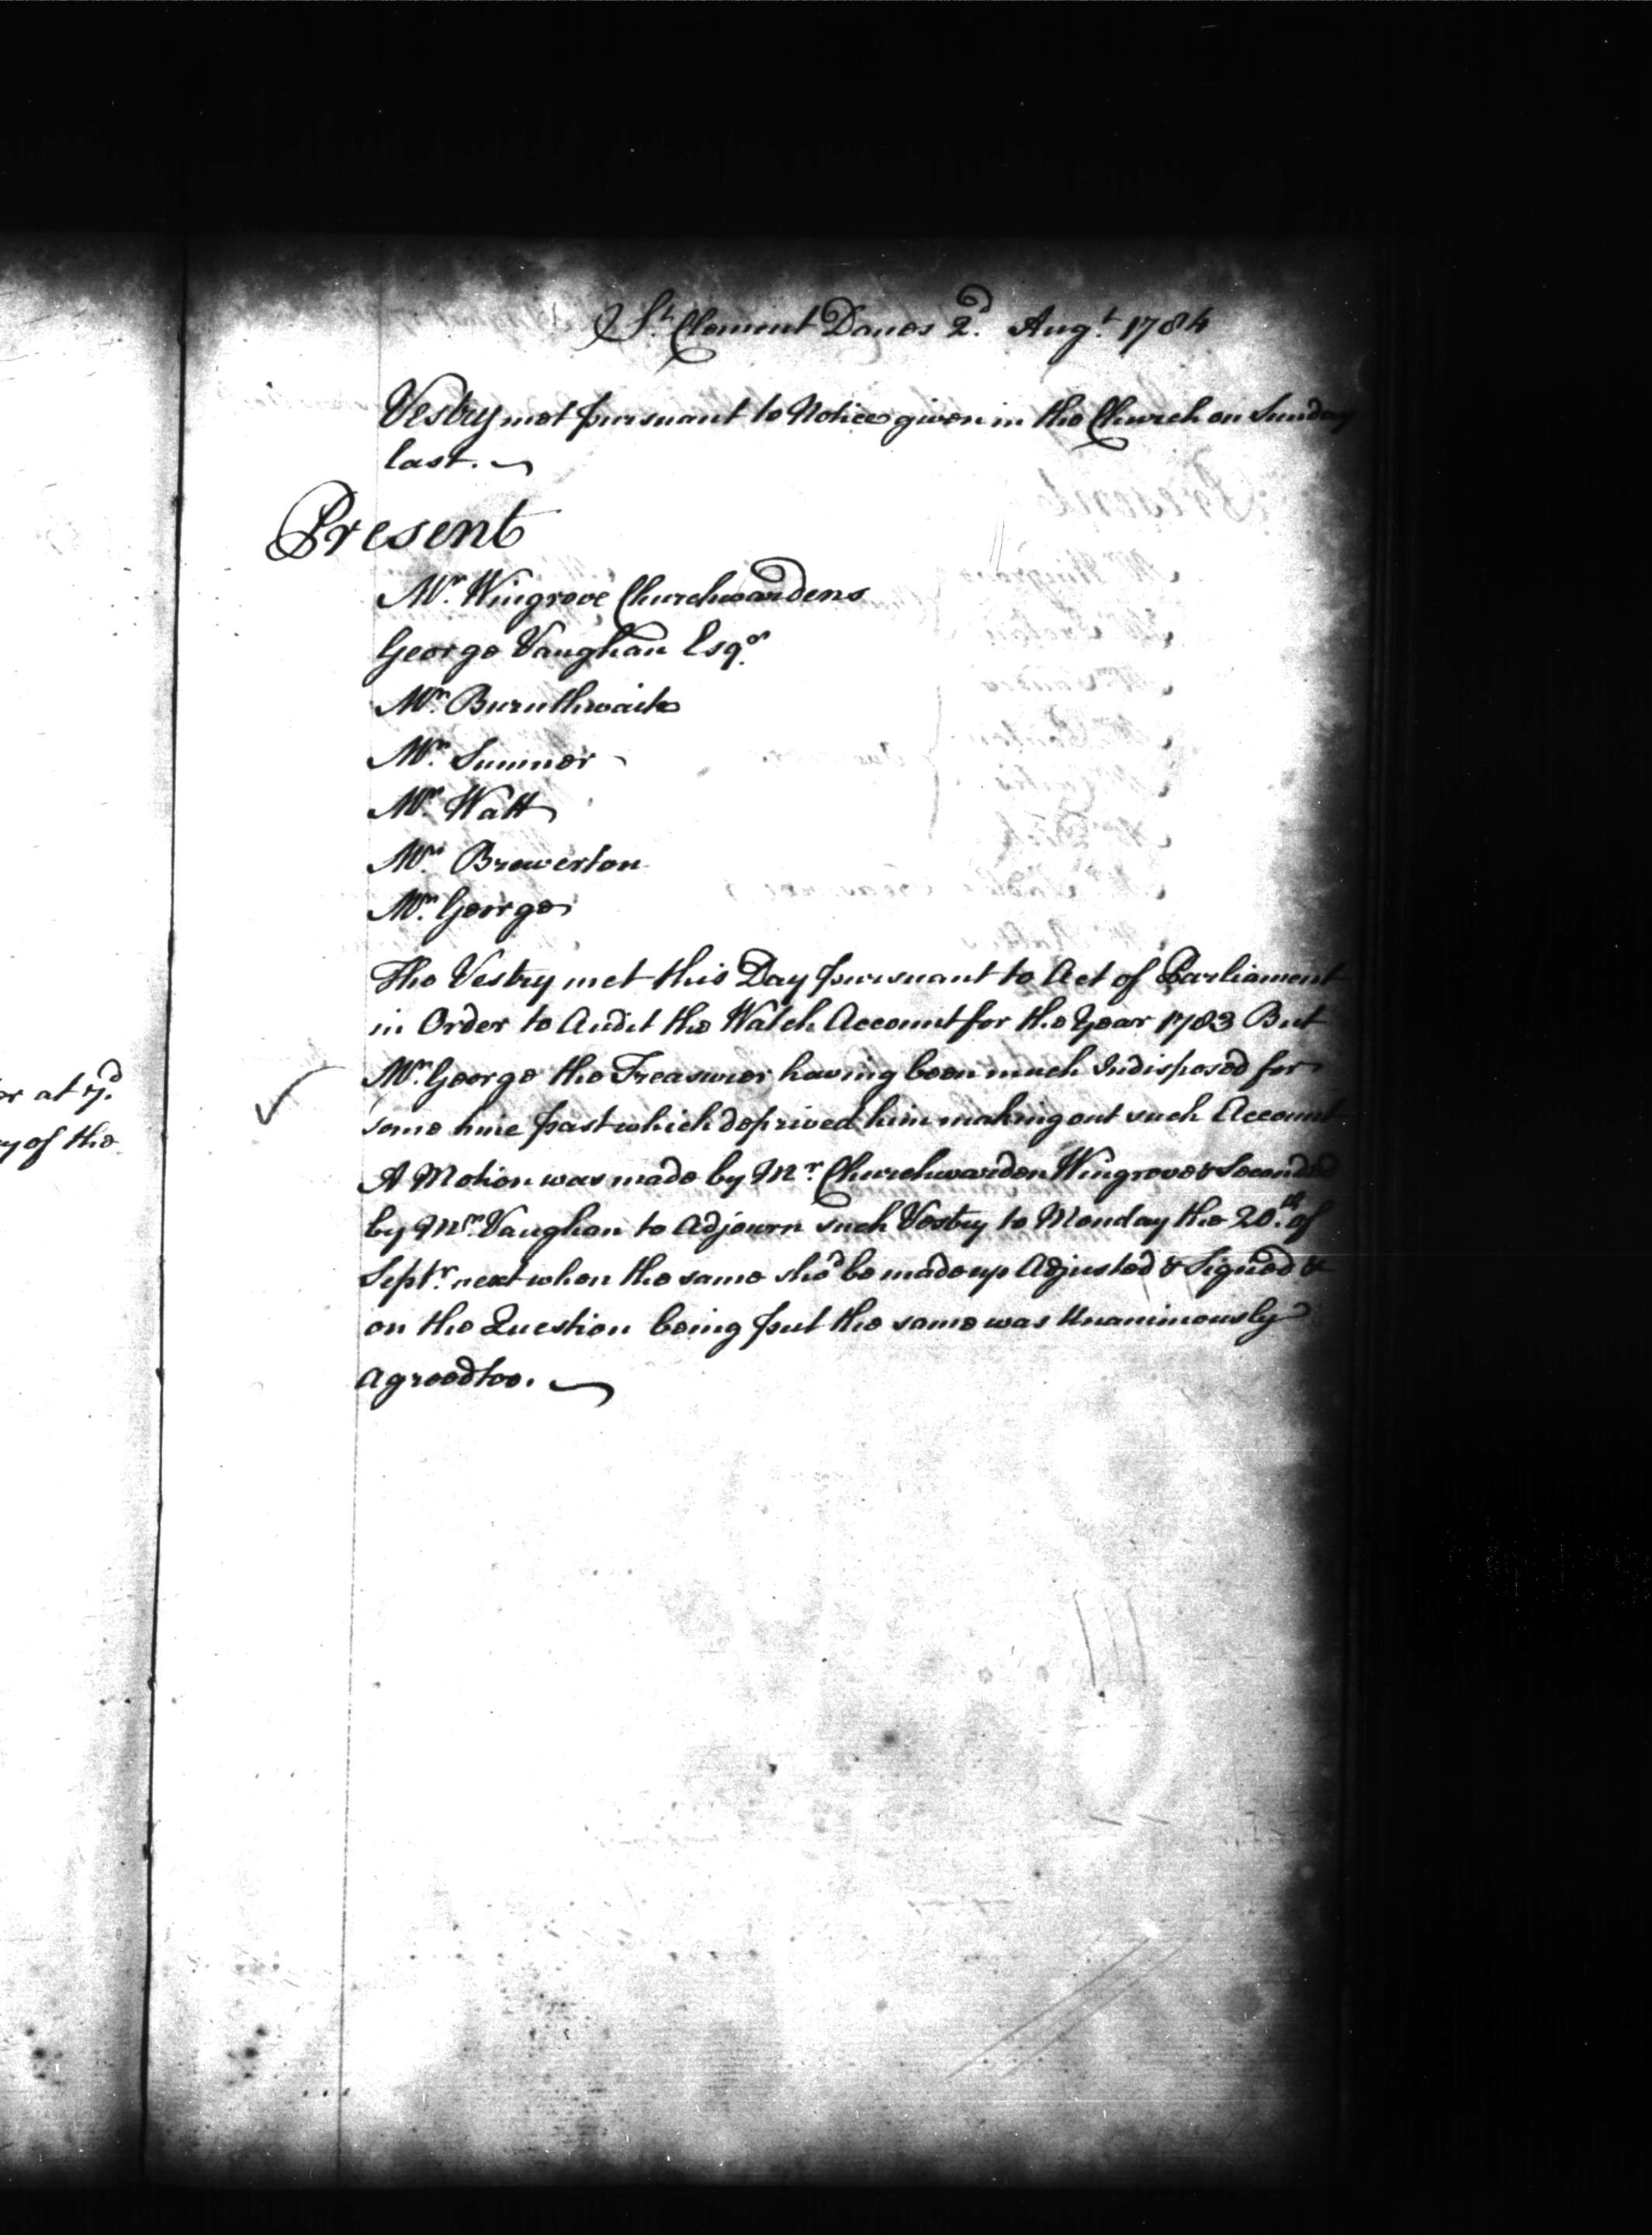 or at 7d.
y of the
St. Clement Danes 2d. Augt. 1784
Vestry met pursuant to Notice given in the Church on Sunday
last.
Present
Mr. Wingrove Churchwardens
George Vaughan Esqr.
Mr. Burnthwaite
Mr. Sumner
Mr. Watt
Mr. Brewerton
Mr. George
The Vestry met this Day pursuant to Act of Parliament
in Order to Audit the Watch Account for the Year 1783 But
Mr. George the Treasurer having been much Indisposed for
some time past which deprived him making out such Account
A Motion was made by Mr. Churchwarden Wingrove & Seconded
by Mr. Vaughan to Adjourn such Vestry to Monday the 20th. of
Septr. next when the same shod be made up Adjusted & Signed &
on the Question being put the same was Unanimously
agreed too.